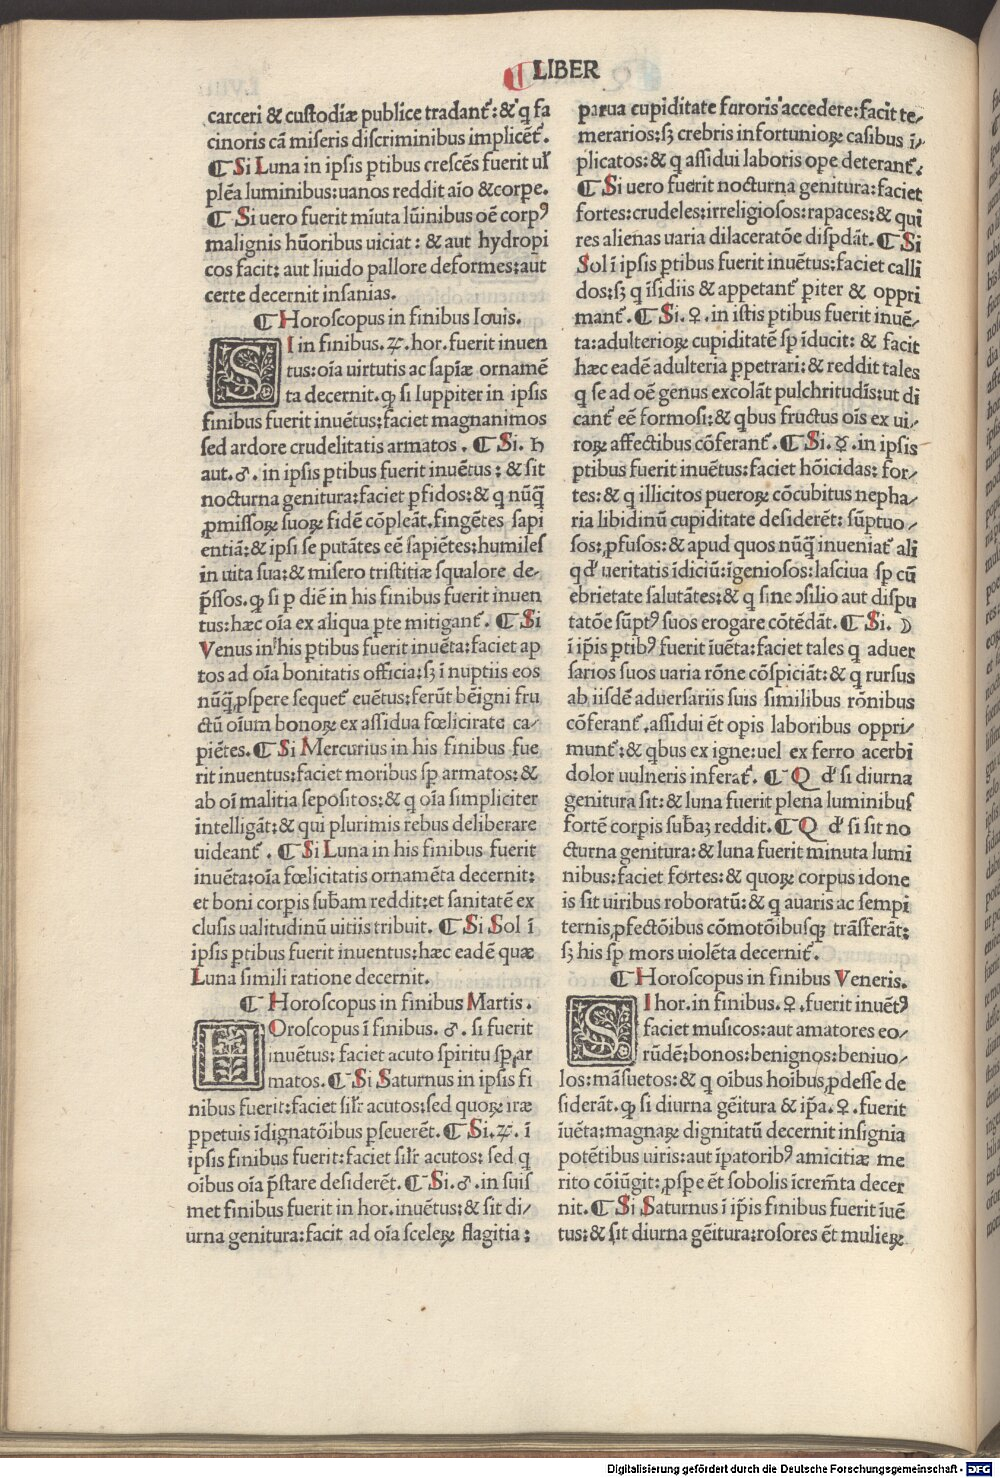 LIBER
carceri & custodiæ publice tradantꝰ: & q fa
cinoris cā miseris discriminibus implicēt᷑.
¶ Si Luna in ipsis ꝑtibus crescēs fuerit ul̓
plēa luminibus: uanos reddit aīo & corꝑe.
¶ Si uero fuerit mīuta lūinibus oē corpꝰ
malignis hūoribus uiciat: & aut hydropi
cos facit: aut liuido pallore deformes: aut
certe decernit insanias.
¶ Horoscopus in finibus Iouis.
SI in finibus. ♃. hor. fuerit inuen
tus: oīa uirtutis ac sapīæ ornamē
ta decernit. ꝙ si Iuppiter in ipsis
finibus fuerit inuētus: faciet magnanimos
sed ardore crudelitatis armatos. ¶ Si. ♄
aut. ♂. in ipsis ꝑtibus fuerit inuētus: & sit
nocturna genitura: faciet ꝑfidos: & q nūq̄
ꝓmissoꝝ suoꝝ fidē cōpleāt. fingētes sapi
entiā: & ipsi se putātes eē sapiētes: humiles
in uita sua: & misero tristitiæ squalore de-
p̄ssos. ꝙ si ꝑ diē in his finibus fuerit inuen
tus: hæc oīa ex aliqua ꝑte mitigant᷑. ¶ Si
Venus in his ꝑtibus fuerit inuēta: faciet ap
tos ad oīa bonitatis officia: sꝫ ī nuptiis eos
nūq̄ ꝓspere sequet᷑ euētus: ferūt bēigni fru
ctū oīum bonoꝝ ex assidua fœlicirate ca-
piētes. ¶ Si Mercurius in his finibus fue
rit inuentus: faciet moribus sꝑ armatos: &
ab oī malitia sepositos: & q oīa simpliciter
intelligāt: & qui plurimis rebus deliberare
uideant᷑. ¶ Si Luna in his finibus fuerit
inuēta: oīa fœlicitatis ornamēta decernit:
et boni corꝑis subam reddit: et sanitatē ex
clusis ualitudinū uitiis tribuit. ¶ Si Sol ī
ipsis ꝑtibus fuerit inuentus: hæc eadē quæ
Luna simili ratione decernit.
¶ Horoscopus in finibus Martis.
HOroscopus ī finibus. ♂. si fuerit
inuētus: faciet acuto spiritu sꝑ ar
matos. ¶ Si Saturnus in ipsis fi
nibus fuerit: faciet sil̓r acutos: sed quoꝝ iræ
ꝑpetuis īdignatōibus ꝑseuerēt. ¶ Si. ♃. ī
ipsis finibus fuerit: faciet sil̓r acutos: sed q
oībus oīa p̄stare desiderēt. ¶ Si. ♂. in suis
met finibus fuerit in hor. inuētus: & sit di-
urna genitura: facit ad oīa sceleꝝ flagitia:
parua cupiditate furoris accedere: facit te-
merarios: sꝫ crebris infortunioꝝ casibus ī-
plicatos: & q assidui laboris ope deterant᷑.
¶ Si uero fuerit nocturna genitura: faciet
fortes: crudeles: irreligiosos: rapaces: & qui
res alienas uaria dilaceratōe disꝑdāt. ¶ Si
Sol ī ipsis ꝑtibus fuerit inuētus: faciet calli
dos: sꝫ q īsidiis & appetant᷑ ꝑiter & oppri
mant᷑. ¶ Si. ♀. in istis ꝑtibus fuerit inuē-
ta: adulterioꝝ cupiditatē sꝑ īducit: & facit
hæc eadē adulteria ꝑpetrari: & reddit tales
q se ad oē genus excolāt pulchritudīs: ut di
cant᷑ eē formosi: & qbus fructus oīs ex ui-
roꝝ affectibus cōferant᷑. ¶ Si. ☿. in ipsis
ꝑtibus fuerit inuētus: faciet hōicidas: for-
tes: & q illicitos pueroꝝ cōcubitus nepha-
ria libidinū cupiditate desiderēt: sūptuo-
sos: ꝓfusos: & apud quos nūq̄ inueniat᷑ ali
qd̓ ueritatis īdiciū: īgeniosos: lasciua sꝑ cū
ebrietate salutātes: & q sine ↄsilio aut dispu
tatōe sūptꝰ suos erogare cōtēdāt. ¶ Si. ☽
ī ip̄is ꝑtibꝰ fuerit īuēta: faciet tales q aduer
sarios suos uaria rōne cōspiciāt: & q rursus
ab iisdē aduersariis suis similibus rōnibus
cōferant᷑. assidui ēt opis laboribus oppri-
munt᷑: & qbus ex igne: uel ex ferro acerbi
dolor uulneris inferat᷑. ¶ Q d̓ si diurna
genitura sit: & luna fuerit plena luminibus
fortē corꝑis subaꝫ reddit. ¶ Q d̓ si sit no
cturna genitura: & luna fuerit minuta lumi
nibus: faciet fortes: & quoꝝ corpus idone
is sit uiribus roboratū: & q auaris ac sempi
ternis ꝓfectōibus cōmotōibusꝗ trāsferāt:
sꝫ his sꝑ mors uiolēta decernit᷑.
¶ Horoscopus in finibus Veneris.
SI hor. in finibus. ♀. fuerit inuētꝰ
faciet musicos: aut amatores eo-
rūdē: bonos: benignos: beniuo-
los: māsuetos: & q oībus hoībus ꝓdesse de
siderāt. ꝙ si diurna gēitura & ip̄a. ♀. fuerit
īuēta: magnaꝝ dignitatū decernit insignia
potētibus uiris: aut īꝑatoribꝰ amicitiæ me
rito cōiūgit: ꝓsꝑe ēt sobolis īcrem̄ta decer
nit. ¶ Si Saturnus ī ip̄is finibus fuerit īuē
tus: & sit diurna gēitura: rosores ēt mulieꝝ
Digitalisierung gefördert durch die Deutsche Forschungsgemeinschaft - DFG